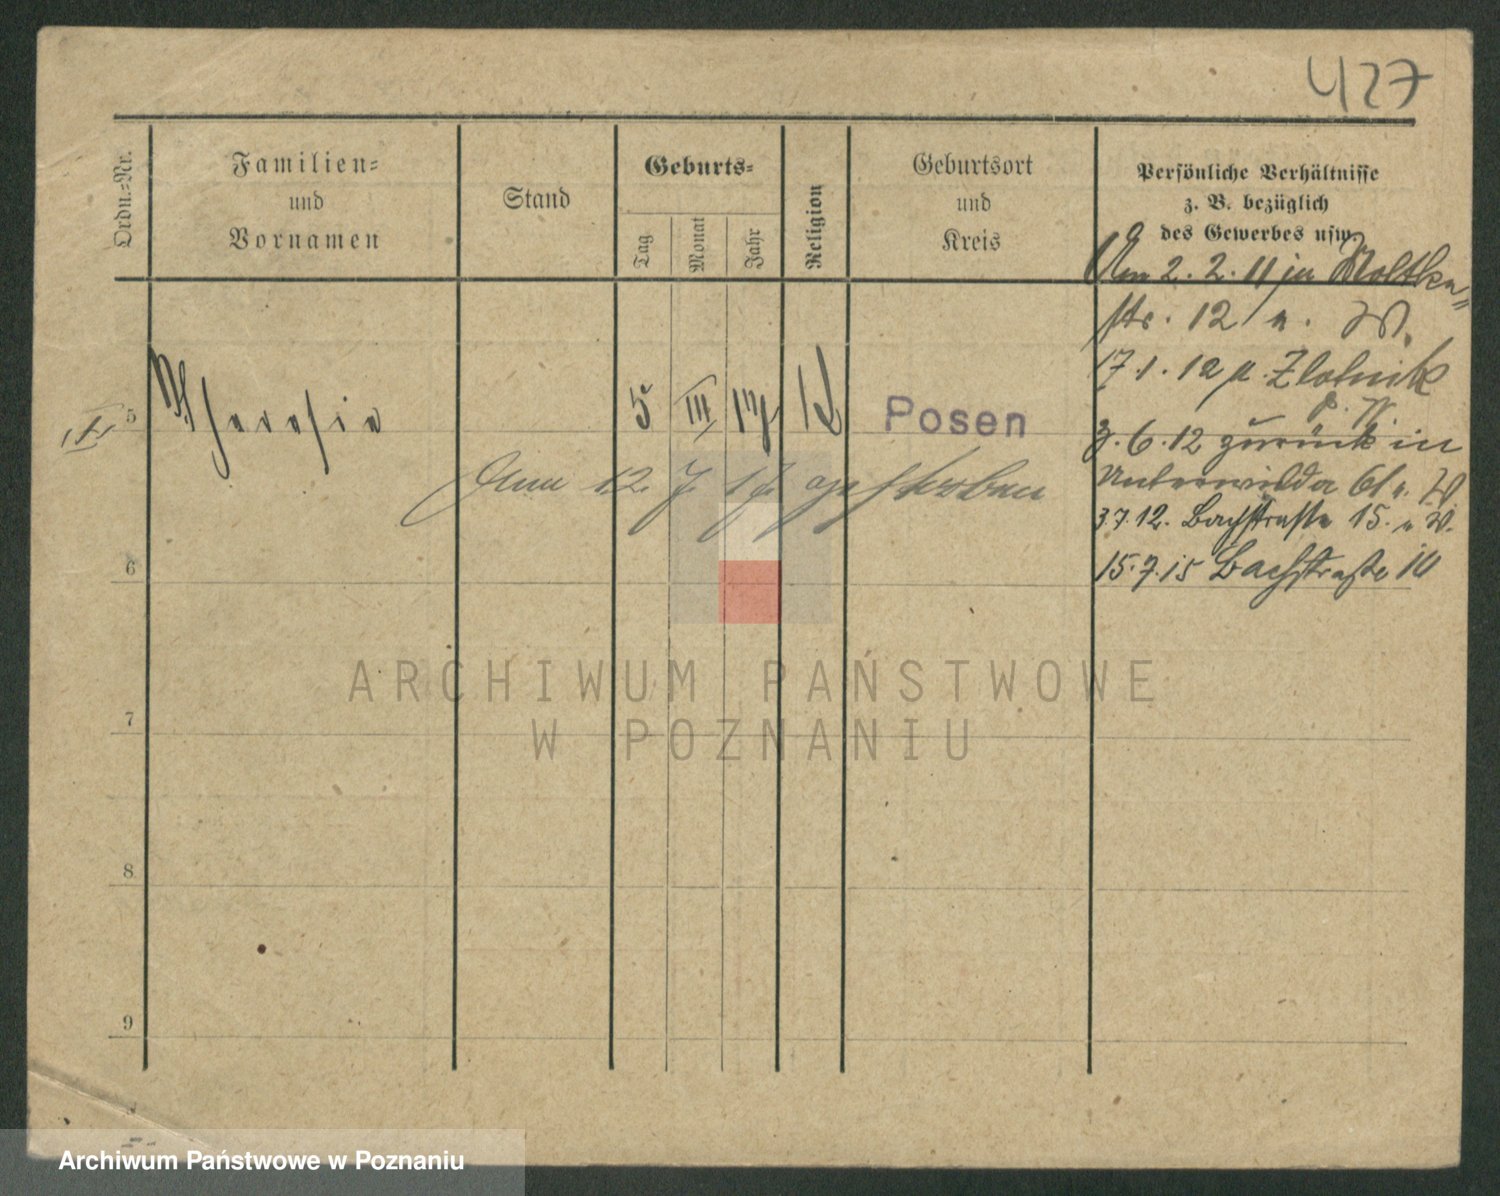 427
Ordn.=Nr.
Familien=
und
Vornamen
Stand
Geburts=
Tag
Monat
Jahr
Religion
Geburtsort
und
Kreis
Persönliche Verhältnisse
z. B. bezüglich
des Gewerbes usw.
Am 2. 2. 11 in Moltke=
str. 12 n. W.
17.1.12 n. Zlotnik
P. W.
3.6.12 zurück in
Unterwilda 61 n. W
3.7.12. Bachstraße 15. n W.
15.7.15 Bachstraße 10
5
Theresia
5
III
17
Posen
Am 12. 7. 17. gestorben
6
7
8
9
ARCHIWUM PAŃSTWOWE
W POZNANIU
Archiwum Państwowe w Poznaniu